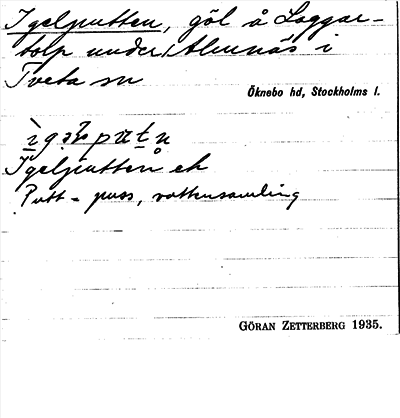 Igelputten, göl å Laggar-
torp under Almnäs i
Tveta sn
Öknebo hd, Stockholms l.
Igelputten ek
Putt - puss, vattensamling
GÖRAN ZETTERBERG 1935.